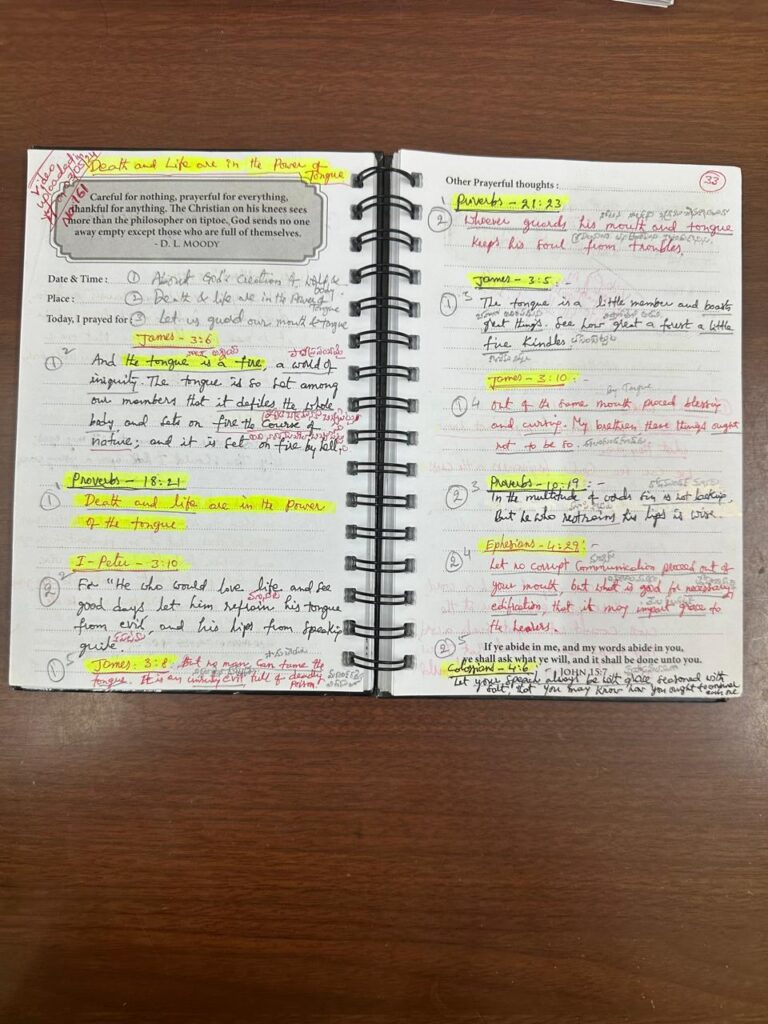 Video
uploaded in
3/05/24
No 161
Death and Life are in the Power of
Tongue
Careful for nothing, prayerful for everything,
thankful for anything. The Christian on his knees sees
more than the philosopher on tiptoe, God sends no one
away empty except those who are full of themselves.
- D. L. MOODY
Date & Time : ① About God's Creation of
body
Place : ② Death & life are in the Power of
Tongue
Today, I prayed for ③ Let us guard our mouth & tongue
James - 3:6
① 2 And the tongue is a fire, a world of
iniquity. The tongue is so set among
our members that it defiles the whole
body, and sets on fire the Course of
nature; and it is set on fire by hell.
Proverbs - 18:21
① 1 Death and life are in the Power
of the tongue
I - Peter - 3:10
② 2 For "He who would love life and see
good days let him refrain his tongue
from evil, and his lips from speaking
guile.
① 5 James: 3:8. But no man can tame the
tongue. It is an unruly evil full of deadly
Poison
Other Prayerful thoughts :
33
Proverbs - 21:23
② 1 Whoever guards his mouth and tongue
keeps his soul from troubles,
James - 3:5: -
① 3 The tongue is a little member and boasts
great things. See how great a forest a little
fire Kindles
James - 3:10: -
by Tongue
① 4 Out of the same mouth proceed blessing
and cursing. My brethren these things ought
not to be so.
② 3 Proverbs - 10:19: -
In the multitude of words sin is not lacking,
But he who restrains his lips is wise.
Ephesians - 4:29: -
② 4 Let no corrupt Communication proceed out of
your mouth, but what is good for necessary
edification, that it may impart grace to
the hearers.
② 5 If ye abide in me, and my words abide in you,
ye shall ask what ye will, and it shall be done unto you.
Colossians - 4:6 JOHN 15:7
Let your speech always be with grace seasoned with
salt, that you may know how you ought to answer
each one